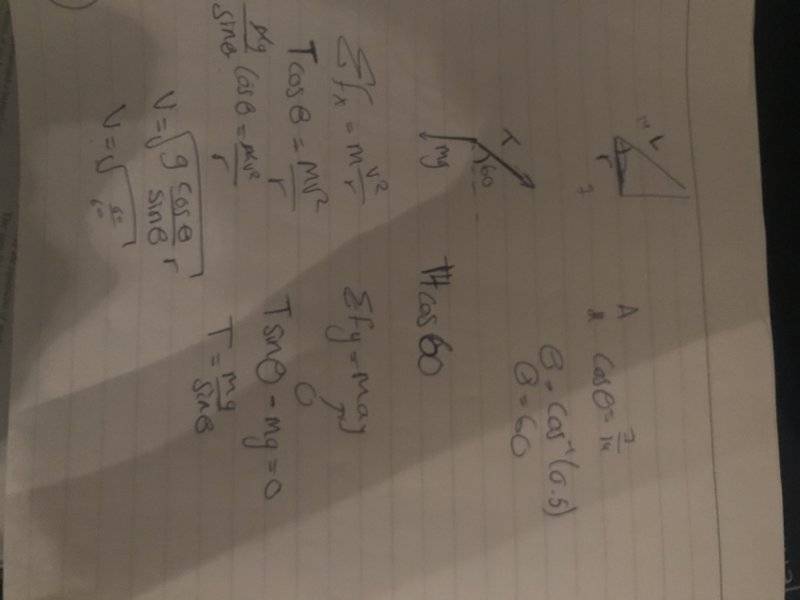 14
r
7
A
cosθ = 7/14
θ = cos⁻¹(0.5)
θ = 60
T
60
mg
14cos60
Σfx = m v²/r
Tcosθ = mv²/r
mg/sinθ cosθ = mv²/r
V = √(g cosθ/sinθ r)
V = √
Σfy = may
0
Tsinθ - mg = 0
T = mg/sinθ